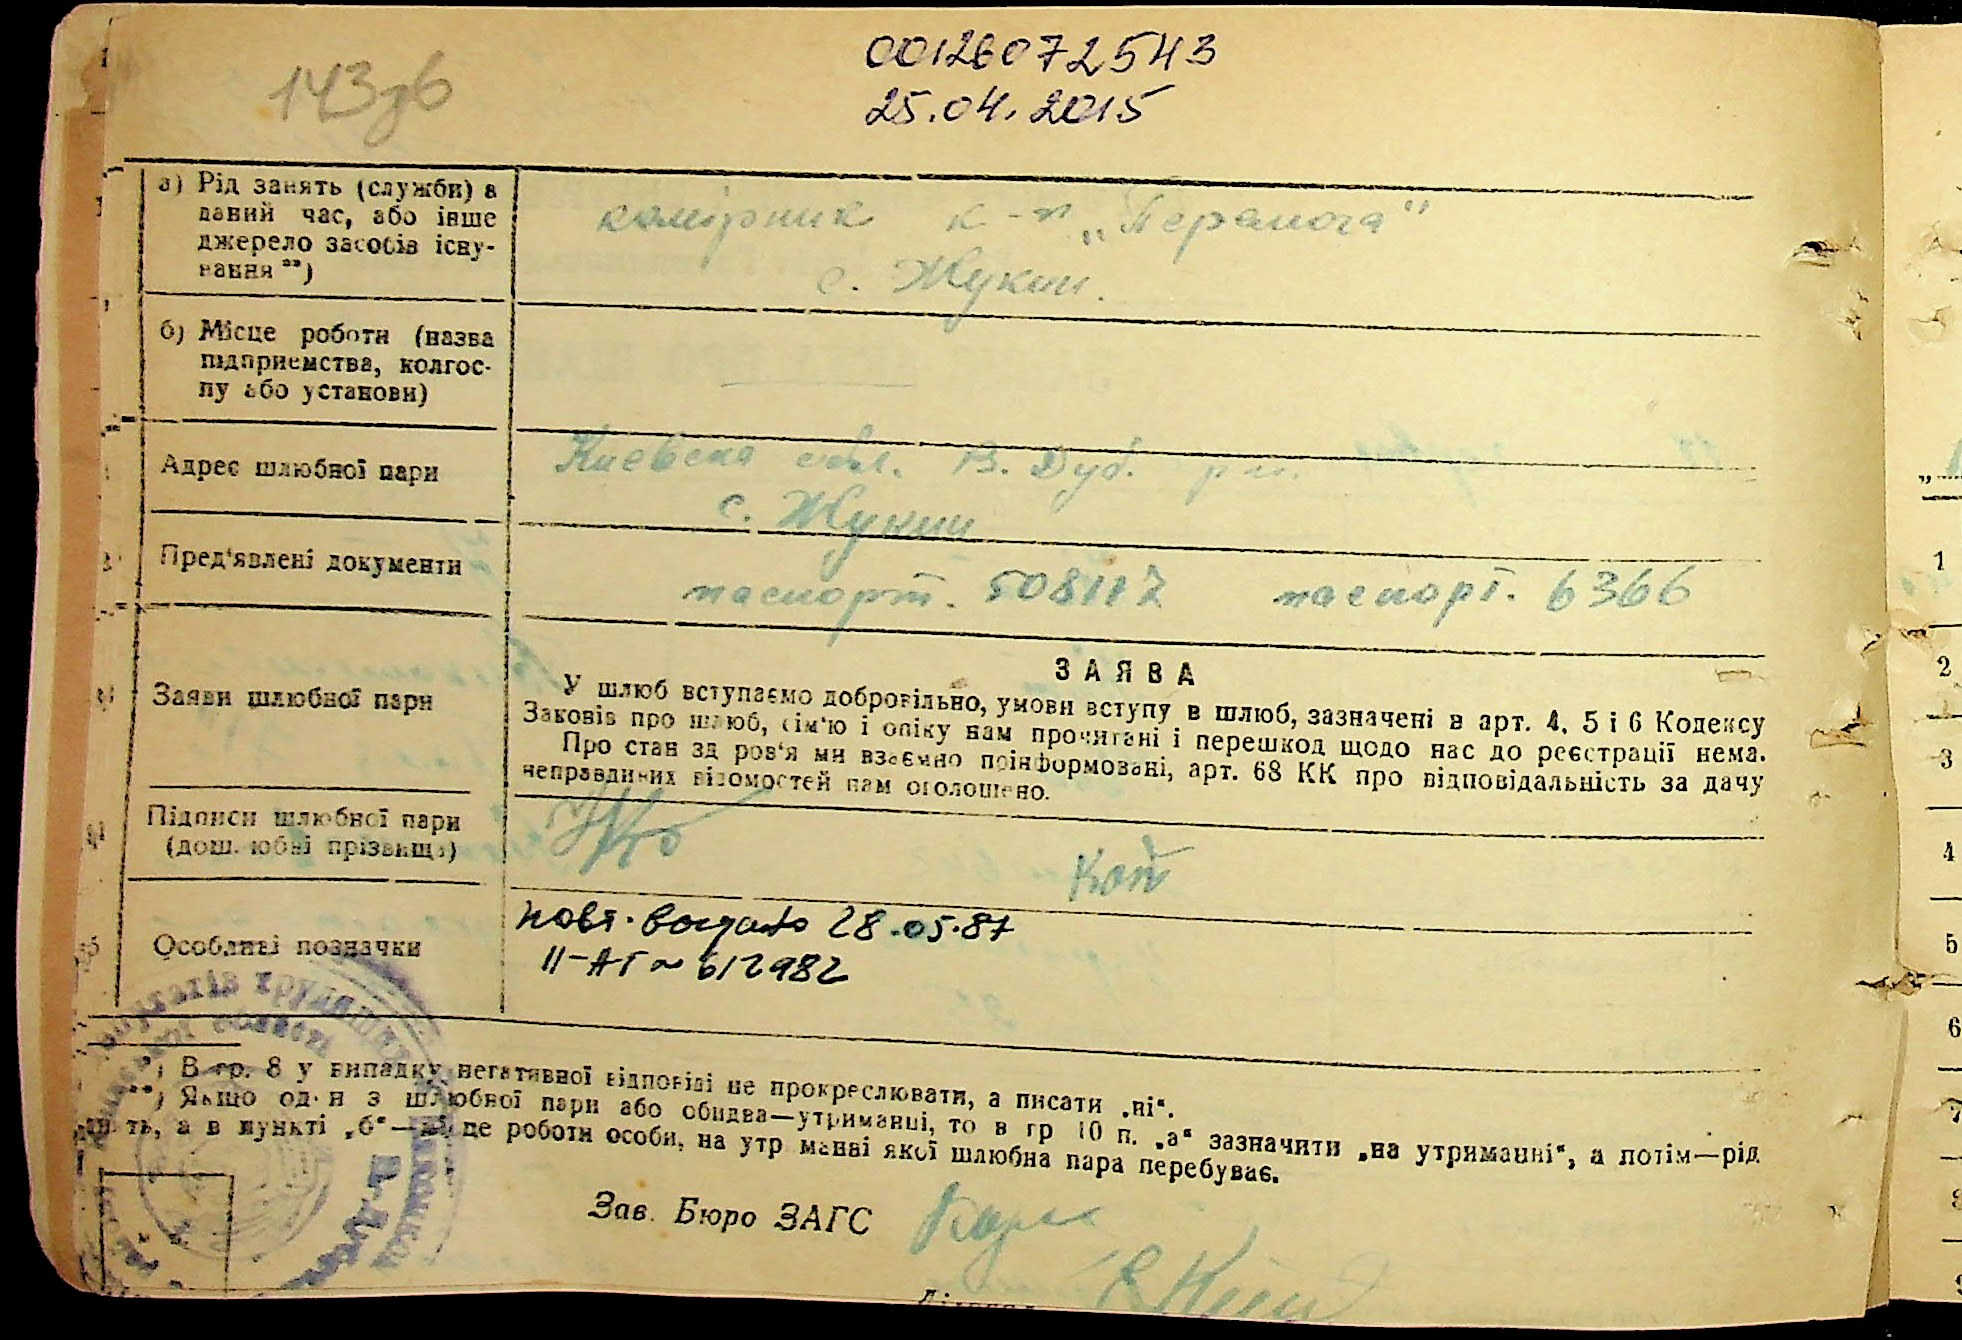 143зб
00126072543
25.04.2015
а) Рід занять (служби) в
даний час, або інше
джерело засобів існу-
вання **)
комірник к-п „Перемога"
с. Жукин.
б) Місце роботи (назва
підприємства, колгос-
пу або установи)
Адрес шлюбної пари
Киевска обл. В. Дуб. р-н.
с. Жукин
Пред'явлені документи
паспорт. 508117 паспорт. 6366
Заяви шлюбної пари
ЗАЯВА
У шлюб вступаємо добровільно, умови вступу в шлюб, зазначені в арт. 4, 5 і 6 Кодексу
Законів про шлюб, сім'ю і опіку нам прочитані і перешкод щодо нас до реєстрації нема.
Про стан здоров'я ми взаємно поінформовані, арт. 68 КК про відповідальність за дачу
неправдивих відомостей нам оголошено.
Підписи шлюбної пари
(дошлюбні прізвища)
Кот
Особливі позначки
повт. выдано 28.05.87
II-АГ № 612982
*) В гр. 8 у випадку негативної відповіді не прокреслювати, а писати „ні".
**) Якщо один з шлюбної пари або обидва—утриманці, то в гр 10 п. „а" зазначити „на утриманні", а потім—рід
занять, а в пункті „б"—місце роботи особи, на утриманні якої шлюбна пара перебуває.
Зав. Бюро ЗАГС
1
2
3
4
5
6
7